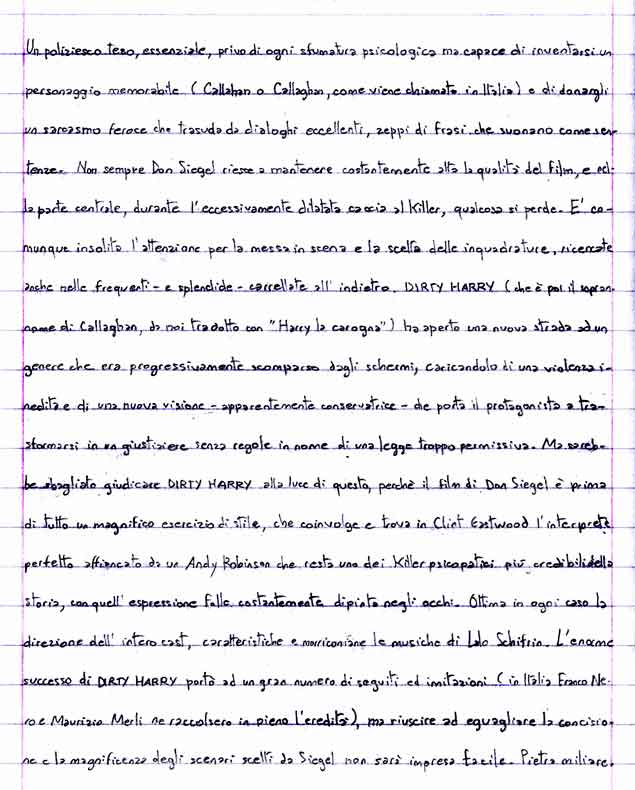 Un poliziesco teso, essenziale, privo di ogni sfumatura psicologica ma capace di inventarsi un
personaggio memorabile (Callahan o Callaghan, come viene chiamato in Italia) e di donargli
un sarcasmo feroce che trasuda da dialoghi eccellenti, zeppi di frasi che suonano come sen-
tenze. Non sempre Don Siegel riesce a mantenere costantemente alta la qualità del film, e nel-
la parte centrale, durante l'eccessivamente dilatata caccia al Killer, qualcosa si perde. E' co-
munque insolita l'attenzione per la messa in scena e la scelta delle inquadrature, ricercate
anche nelle frequenti - e splendide - carrellate all'indietro. DIRTY HARRY (che è poi il sopran-
nome di Callaghan, da noi tradotto con "Harry la carogna") ha aperto una nuova strada ad un
genere che era progressivamente scomparso dagli schermi, caricandolo di una violenza i-
nedita e di una nuova visione - apparentemente conservatrice - che porta il protagonista a tra-
sformarsi in un giustiziere senza regole in nome di una legge troppo permissiva. Ma sareb-
be sbagliato giudicare DIRTY HARRY alla luce di questo, perchè il film di Don Siegel è prima
di tutto un magnifico esercizio di stile, che coinvolge e trova in Clint Eastwood l'interprete
perfetto affiancato da un Andy Robinson che resta uno dei Killer psicopatici più credibili della
storia, con quell'espressione folle costantemente dipinta negli occhi. Ottima in ogni caso la
direzione dell'intero cast, caratteristiche e morriconiane le musiche di Lalo Schifrin. L'enorme
successo di DIRTY HARRY portò ad un gran numero di seguiti ed imitazioni (in Italia Franco Ne-
ro e Maurizio Merli ne raccolsero in pieno l'eredità), ma riuscire ad eguagliare la concisio-
ne e la magnificenza degli scenari scelti da Siegel non sarà impresa facile. Pietra miliare.